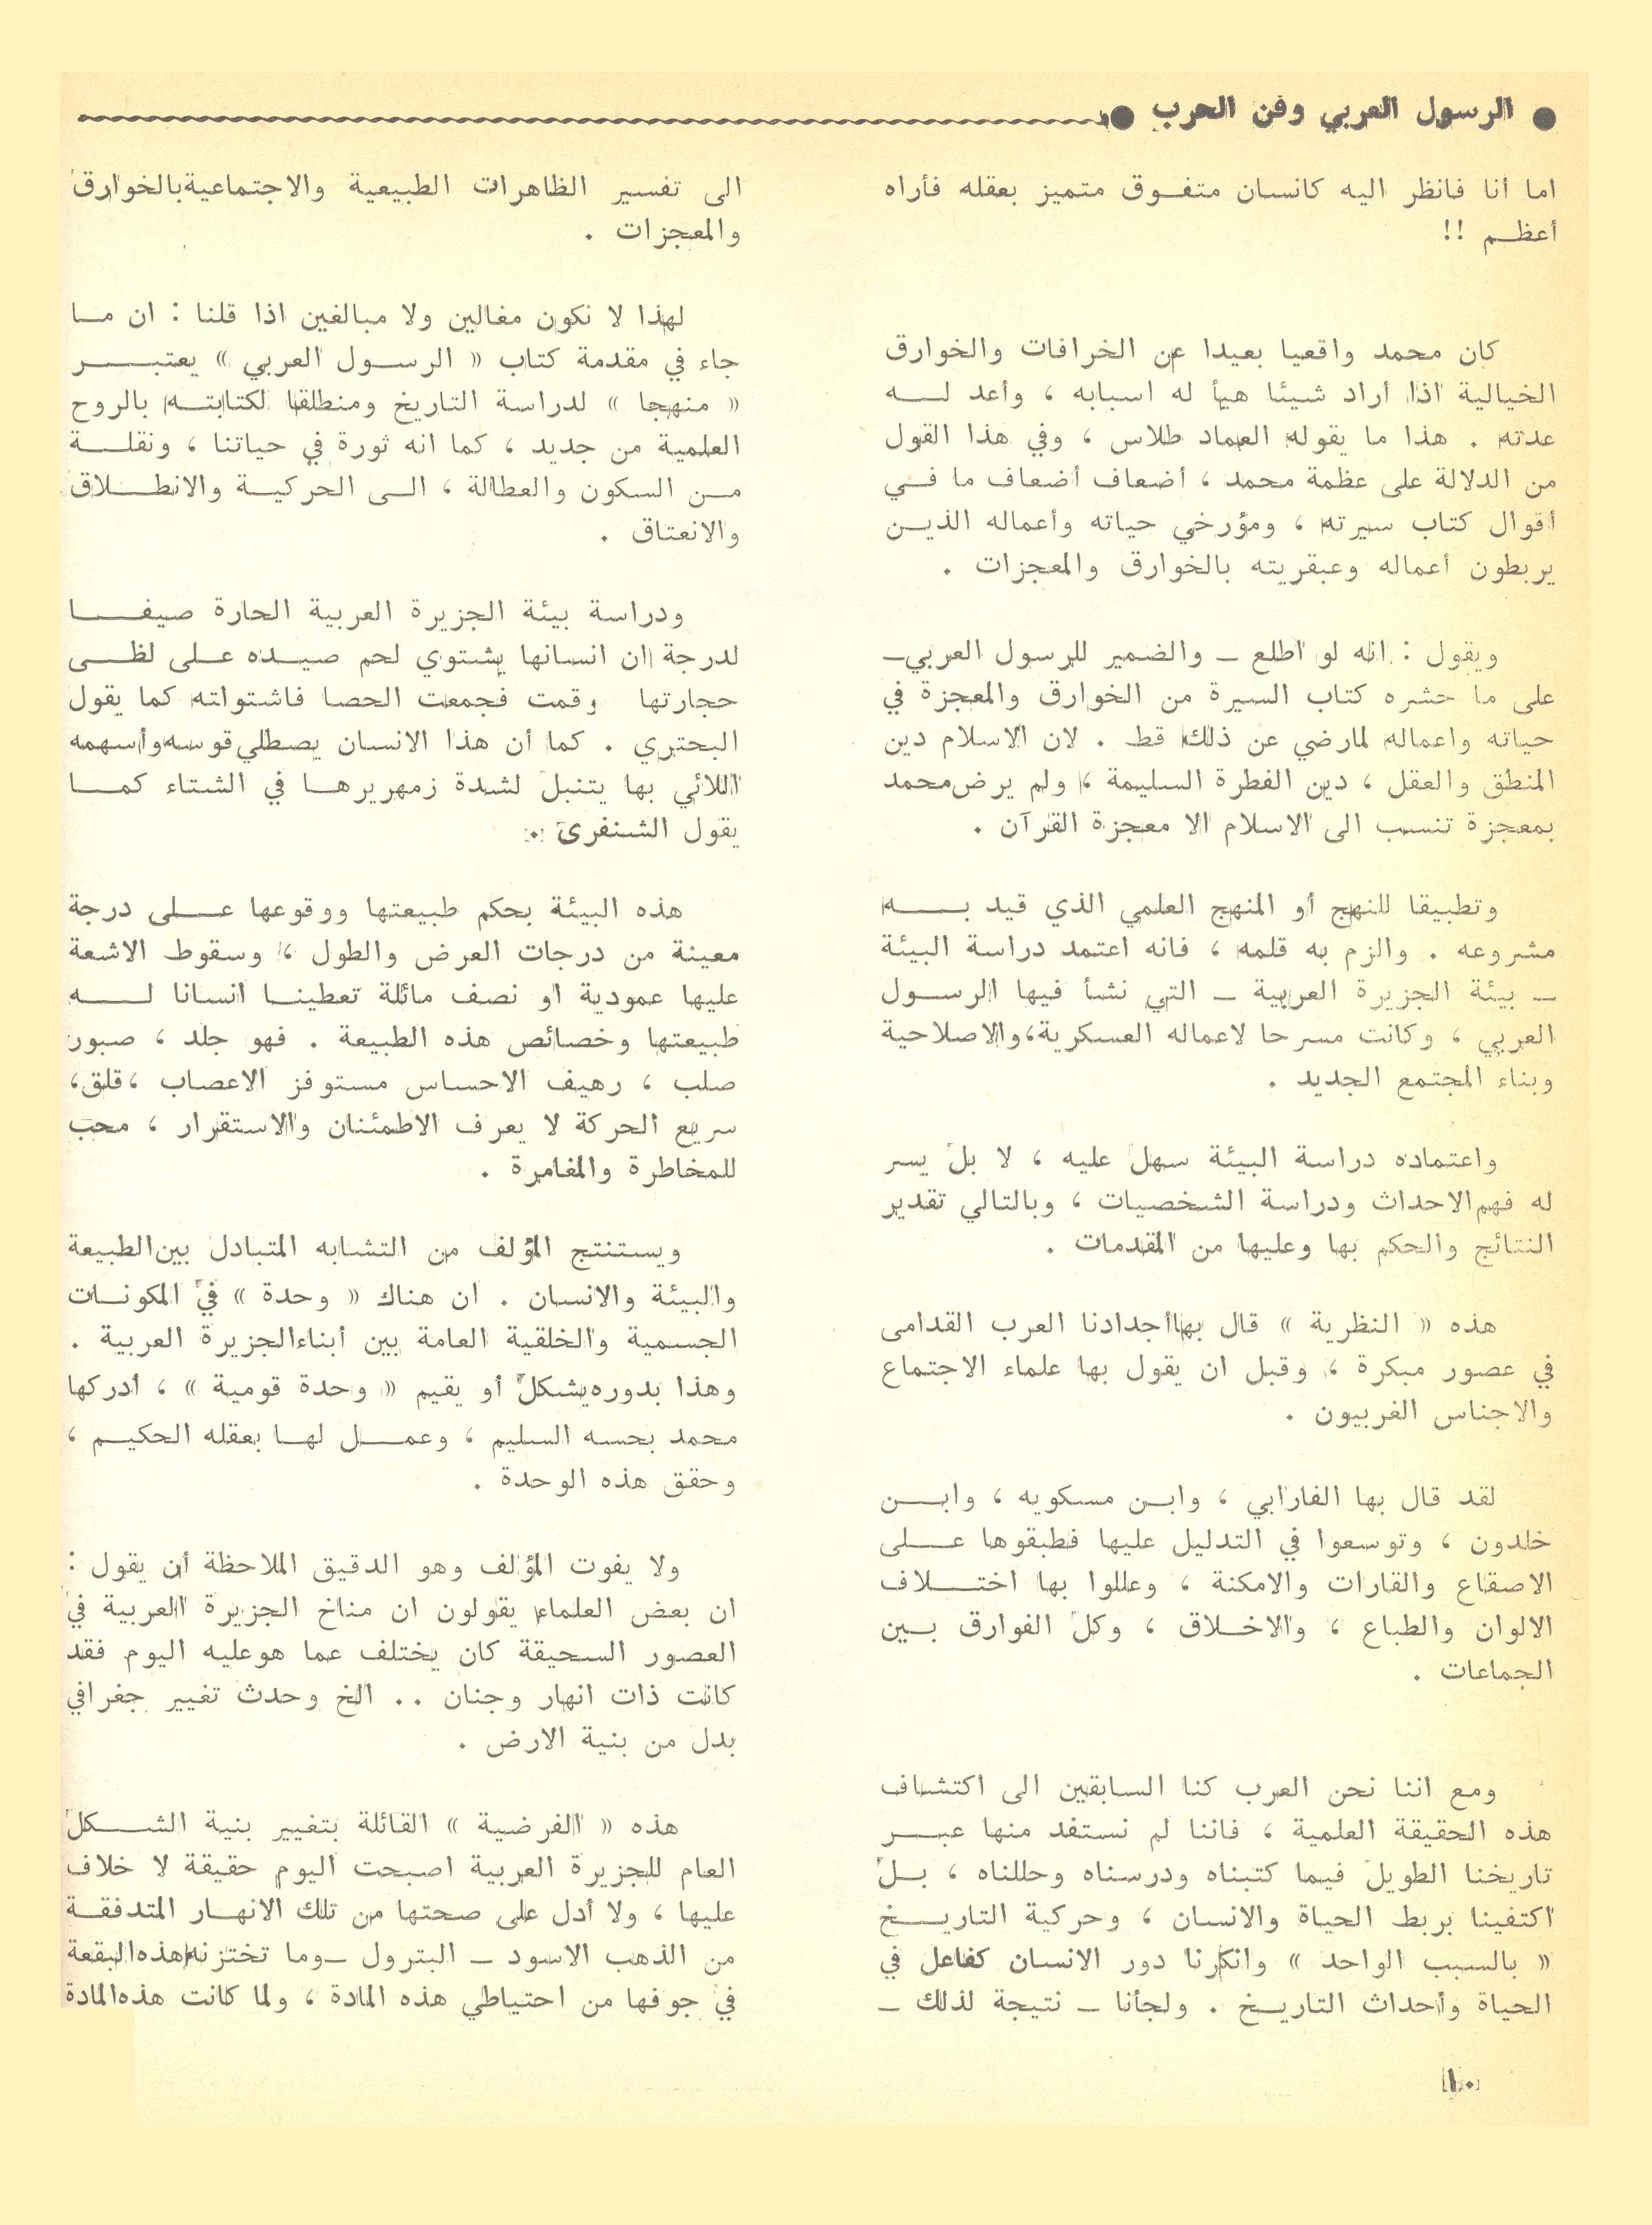 ● الرسول العربي وفن الحرب ●
اما أنا فانظر اليه كانسان متفوق متميز بعقله فأراه
أعظم !!
كان محمد واقعيا بعيدا عن الخرافات والخوارق
الخيالية اذا أراد شيئا هيأ له اسبابه ، وأعد له
عدته . هذا ما يقوله العماد طلاس ، وفي هذا القول
من الدلالة على عظمة محمد ، أضعاف أضعاف ما في
أقوال كتاب سيرته ، ومؤرخي حياته وأعماله الذين
يربطون أعماله وعبقريته بالخوارق والمعجزات .
ويقول : انه لو اطلع ـ والضمير للرسول العربي ـ
على ما حشره كتاب السيرة من الخوارق والمعجزة في
حياته واعماله لمارضي عن ذلك قط . لان الاسلام دين
المنطق والعقل ، دين الفطرة السليمة ، ولم يرض محمد
بمعجزة تنسب الى الاسلام الا معجزة القرآن .
وتطبيقا للنهج أو المنهج العلمي الذي قيد به
مشروعه . والزم به قلمه ، فانه اعتمد دراسة البيئة
ـ بيئة الجزيرة العربية ـ التي نشأ فيها الرسول
العربي ، وكانت مسرحا لاعماله العسكرية ، والاصلاحية
وبناء المجتمع الجديد .
واعتماده دراسة البيئة سهل عليه ، لا بل يسر
له فهم الاحداث ودراسة الشخصيات ، وبالتالي تقدير
النتائج والحكم بها وعليها من المقدمات .
هذه « النظرية » قال بها أجدادنا العرب القدامى
في عصور مبكرة ، وقبل ان يقول بها علماء الاجتماع
والاجناس الغربيون .
لقد قال بها الفارابي ، وابن مسكويه ، وابن
خلدون ، وتوسعوا في التدليل عليها فطبقوها على
الاصقاع والقارات والامكنة ، وعللوا بها اختلاف
الالوان والطباع ، والاخلاق ، وكل الفوارق بين
الجماعات .
ومع اننا نحن العرب كنا السابقين الى اكتشاف
هذه الحقيقة العلمية ، فاننا لم نستفد منها عبر
تاريخنا الطويل فيما كتبناه ودرسناه وحللناه ، بل
اكتفينا بربط الحياة والانسان ، وحركية التاريخ
« بالسبب الواحد » وانكرنا دور الانسان كفاعل في
الحياة وأحداث التاريخ . ولجأنا ـ نتيجة لذلك ـ
الى تفسير الظاهرات الطبيعية والاجتماعية بالخوارق
والمعجزات .
لهذا لا نكون مغالين ولا مبالغين اذا قلنا : ان ما
جاء في مقدمة كتاب « الرسول العربي » يعتبر
« منهجا » لدراسة التاريخ ومنطلقا لكتابته بالروح
العلمية من جديد ، كما انه ثورة في حياتنا ، ونقلة
من السكون والعطالة ، الى الحركية والانطلاق
والانعتاق .
ودراسة بيئة الجزيرة العربية الحارة صيفا
لدرجة ان انسانها يشتوي لحم صيده على لظى
حجارتها وقمت فجمعت الحصا فاشتواته كما يقول
البحتري . كما أن هذا الانسان يصطلي قوسه وأسهمه
اللائي بها يتنبل لشدة زمهريرها في الشتاء كما
يقول الشنفرى .
هذه البيئة بحكم طبيعتها ووقوعها على درجة
معينة من درجات العرض والطول ، وسقوط الاشعة
عليها عمودية او نصف مائلة تعطينا انسانا له
طبيعتها وخصائص هذه الطبيعة . فهو جلد ، صبور
صلب ، رهيف الاحساس مستوفز الاعصاب ، قلق ،
سريع الحركة لا يعرف الاطمئنان والاستقرار ، محب
للمخاطرة والمغامرة .
ويستنتج المؤلف من التشابه المتبادل بين الطبيعة
والبيئة والانسان . ان هناك « وحدة » في المكونات
الجسمية والخلقية العامة بين أبناء الجزيرة العربية .
وهذا بدوره يشكل أو يقيم « وحدة قومية » ، أدركها
محمد بحسه السليم ، وعمل لها بعقله الحكيم ،
وحقق هذه الوحدة .
ولا يفوت المؤلف وهو الدقيق الملاحظة أن يقول :
ان بعض العلماء يقولون ان مناخ الجزيرة العربية في
العصور السحيقة كان يختلف عما هو عليه اليوم فقد
كانت ذات انهار وجنان .. الخ وحدث تغيير جغرافي
بدل من بنية الارض .
هذه « الفرضية » القائلة بتغيير بنية الشكل
العام للجزيرة العربية اصبحت اليوم حقيقة لا خلاف
عليها ، ولا أدل على صحتها من تلك الانهار المتدفقة
من الذهب الاسود ـ البترول ـ وما تختزنه هذه البقعة
في جوفها من احتياطي هذه المادة ، ولما كانت هذه المادة
١٠